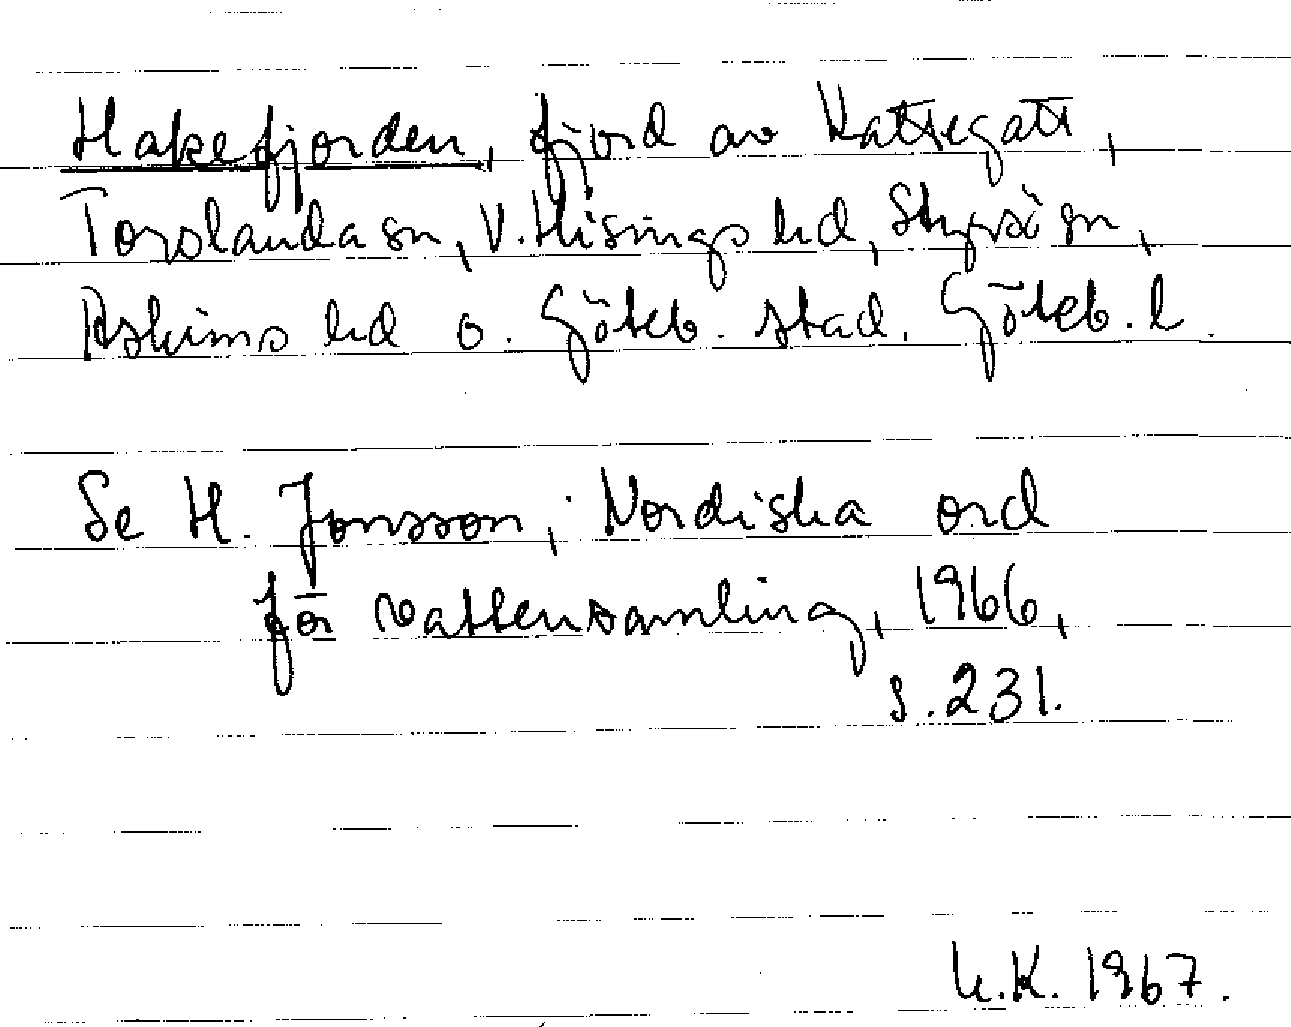 Hakefjorden, fjord av Kattegatt,
Torslanda sn, V. Hisings hd, Styrsö sn,
Askims hd o. Göteb. stad. Göteb. l.
Se H. Jonsson, Nordiska ord
för vattensamling, 1966,
s. 231.
K. 1967.